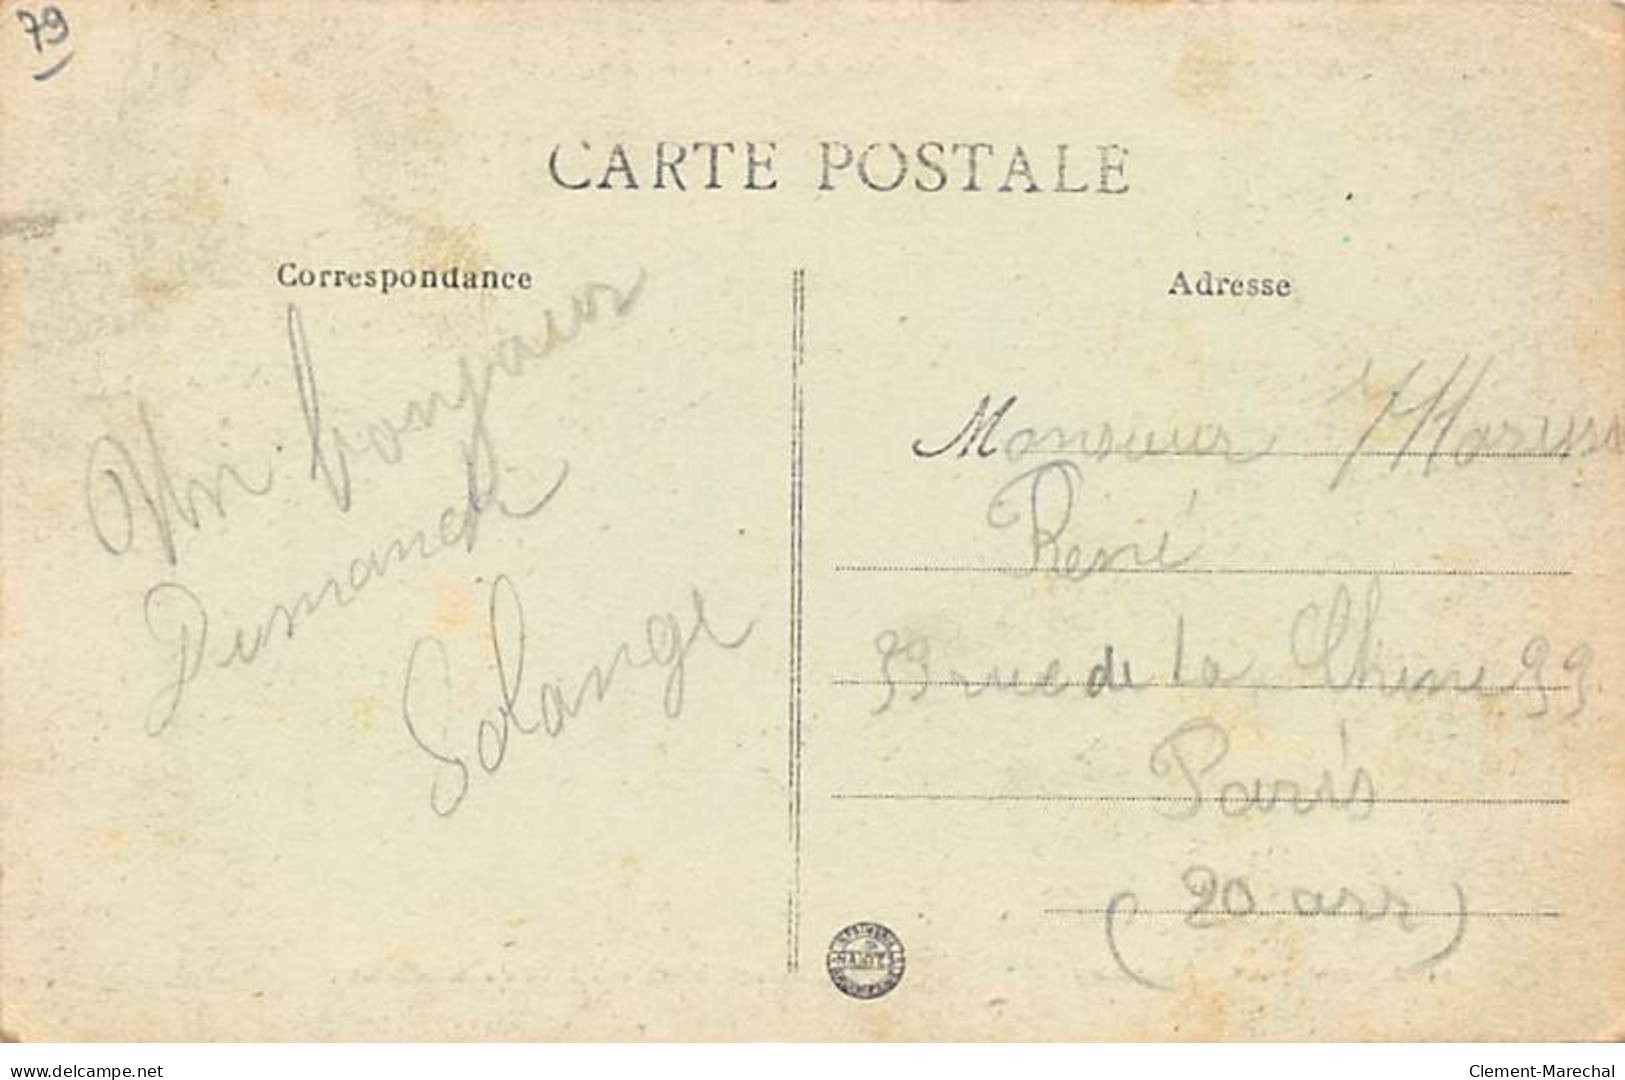 79
CARTE POSTALE
Correspondance
Adresse
Un bonjour
Dimanche
Solange
Monsieur Marius
René
39 rue de la Chine 39
Paris
(20 arr)
NANTES
delcampe.net
Clement-Marechal